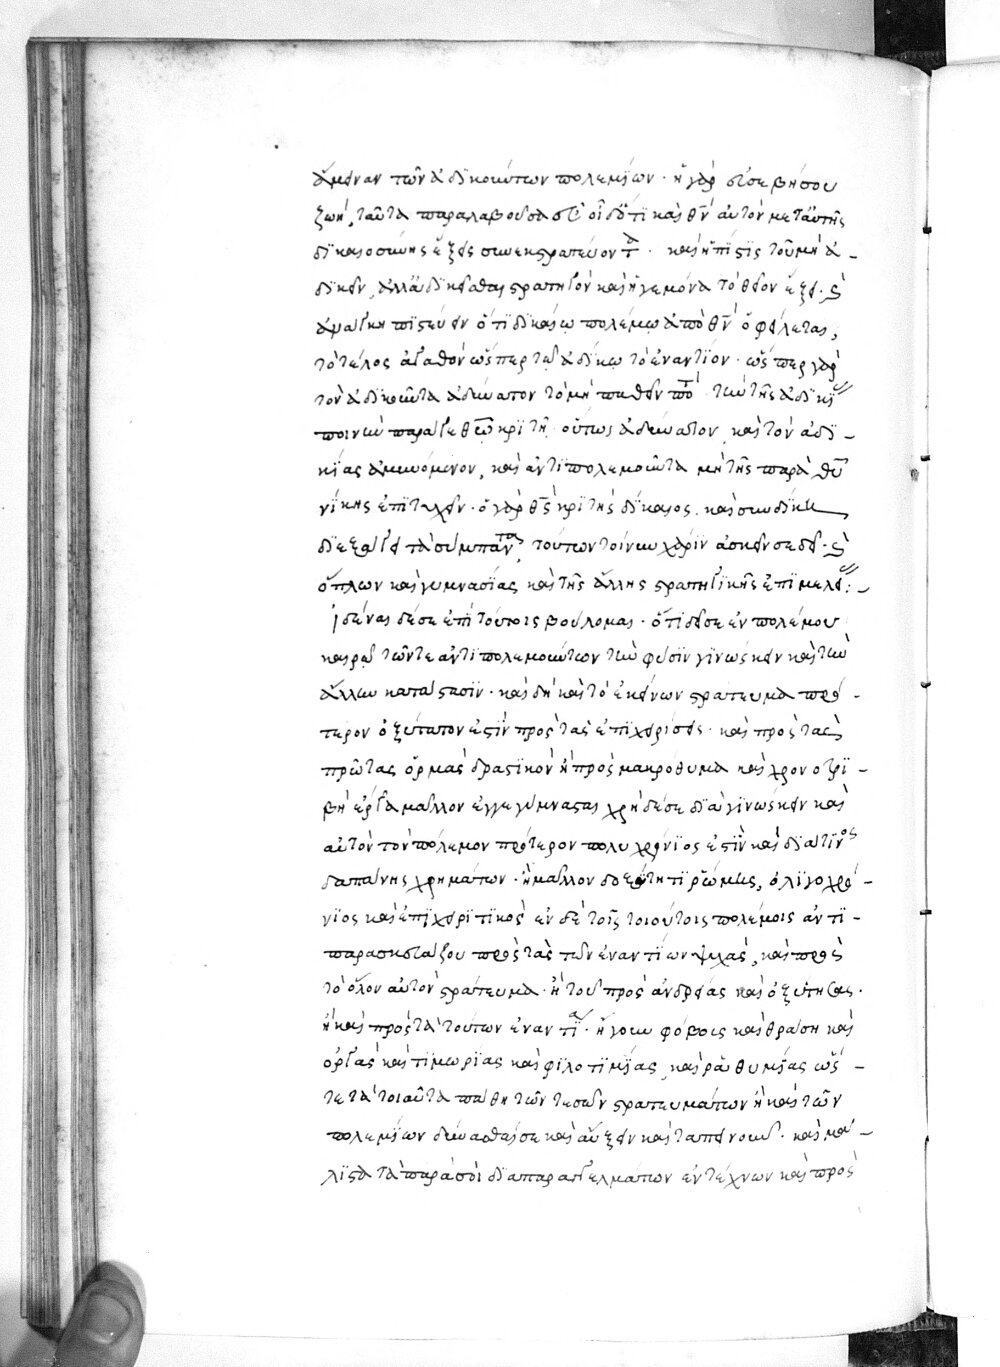 ἄμειναν τῶν ἀδικούντων πολεμίων · ἡ γὰρ
ζωή, ταῦτα παραλαβοῦσα καὶ θν̅ αὐτὸν μετ' αὐτῆς
δικαιοσύνης ἕξεις συνεκστρατεύοντα · καὶ ἡ πίστις τοῦ μὴ ἀ-
δικεῖν, ἀλλὰ δικ στρατηγὸν καὶ ἡγεμόνα τὸ θεῖον ἕξει · καὶ
ἀνάγκη πιστεύειν ὅτι δικαίῳ πολέμῳ ἀπὸ θυ̅ ὀφείλεται,
τὸ τέλος ἀγαθὸν ὥσπερ τῷ ἀδίκῳ τὸ ἐναντίον · ὥσπερ γὰρ
τὸν ἀδικοῦντα ἀδύνατον τὸ μὴ παθεῖν ποτε · τὴν τῆς ἀδικί
ποινὴν παρὰ τῷ θεῷ κριτῇ · οὕτως ἀδύνατον, καὶ τὸν ἀδι-
κίας ἀμυνόμενον, καὶ ἀντιπολεμοῦντα μὴ τῆς παρὰ θυ̅
νίκης ἐπιτυχεῖν · ὁ γὰρ θς̅ κριτὴς δίκαιος, καὶ σὺν δίκῃ
διεξάγει τὰ σύμπαντα, τούτων τοίνυν χάριν ἀσκεῖν σε δεῖ · καὶ
ὅπλων καὶ γυμνασίας καὶ τῆς ἄλλης στρατηγικῆς ἐπιμελεί :-
Εἰδέναι δέ σε ἐπὶ τούτοις βούλομαι · ὅτι δεῖ σε ἐν πολέμου
καιρῷ τῶν τε ἀντιπολεμούντων τὴν φύσιν γινώσκειν καὶ τὴν
ἄλλην κατάστασιν · καὶ δὴ καὶ τὸ ἐκείνων στράτευμα πρό-
τερον ὀξύτατόν ἐστιν πρὸς τὰς ἐπιχειρίσεις · καὶ πρὸς τὰς
πρώτας ὁρμὰς δραστικὸν ἢ πρὸς μακροθυμα καὶ χρονοτρι-
βῆ ἔργα μᾶλλον ἐγγεγύμνασται χρὴ δέ σε διαγινώσκειν καὶ
αὐτὸν τὸν πόλεμον πρότερον πολυχρόνιός ἐστιν καὶ διά τινος
δαπάνης χρημάτων · ἢ μᾶλλον ῥώμης, ὀλιγοχρό-
νιος καὶ ἐπιχειριτικὸς ἐν δὲ τοῖς τοιούτοις πολέμοις ἀντι-
παρασκευάζου πρὸς τὰς τῶν ἐναντίων ψυχάς, καὶ πρὸς
τὸ ὅλον αὐτὸν στράτευμα · ἤτοι πρὸς ἀνδρείας καὶ ὀξύτητας ·
ἢ καὶ πρὸς τὰ τούτων ἐναντία · ἤγουν φόβοις καὶ θράση καὶ
ὀργὰς καὶ τιμωρίας καὶ φιλοτιμίας, καὶ ῥαθυμίας ὥσ-
τε τὰ τοιαῦτα πάθη τῶν τε σῶν στρατευμάτων ἢ καὶ τῶν
πολεμίων δύνασθαί σε καὶ αὔξειν καὶ ταπεινοῦν · καὶ μά-
λιστα τὰ παρὰ σοὶ διὰ παραγγελμάτων ἐντέχνων καὶ πρὸς